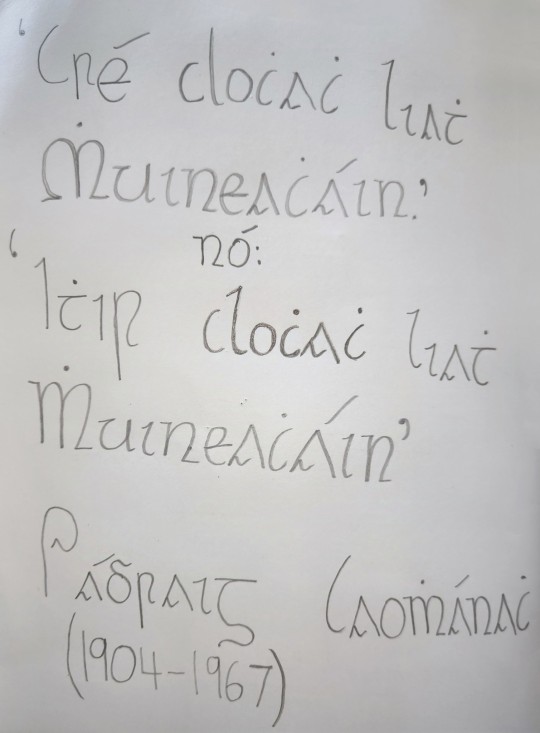 ‘Cré cloċaċ liaṫ
Ṁuineaċáin.’
nó:
‘Iṫir cloċaċ liaṫ
Ṁuineaċáin’
Pádraig Caoṁánaċ
(1904-1967)